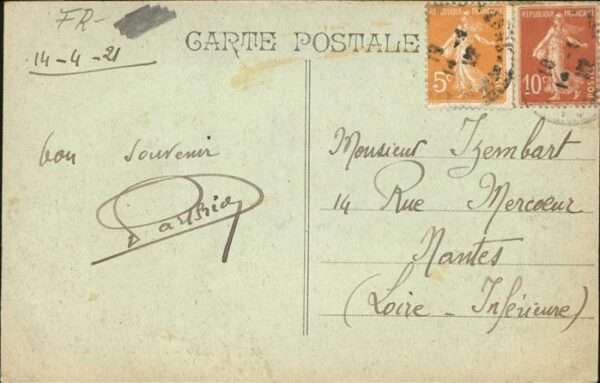 FR-
14-4-21
CARTE POSTALE
REPUBLIQUE FRANCAISE
5c
REPUBLIQUE FRANCAISE
10c
POSTES
bon souvenir
Monsieur Izembart
14 Rue Mercoeur
Nantes
(Loire - Inférieure)